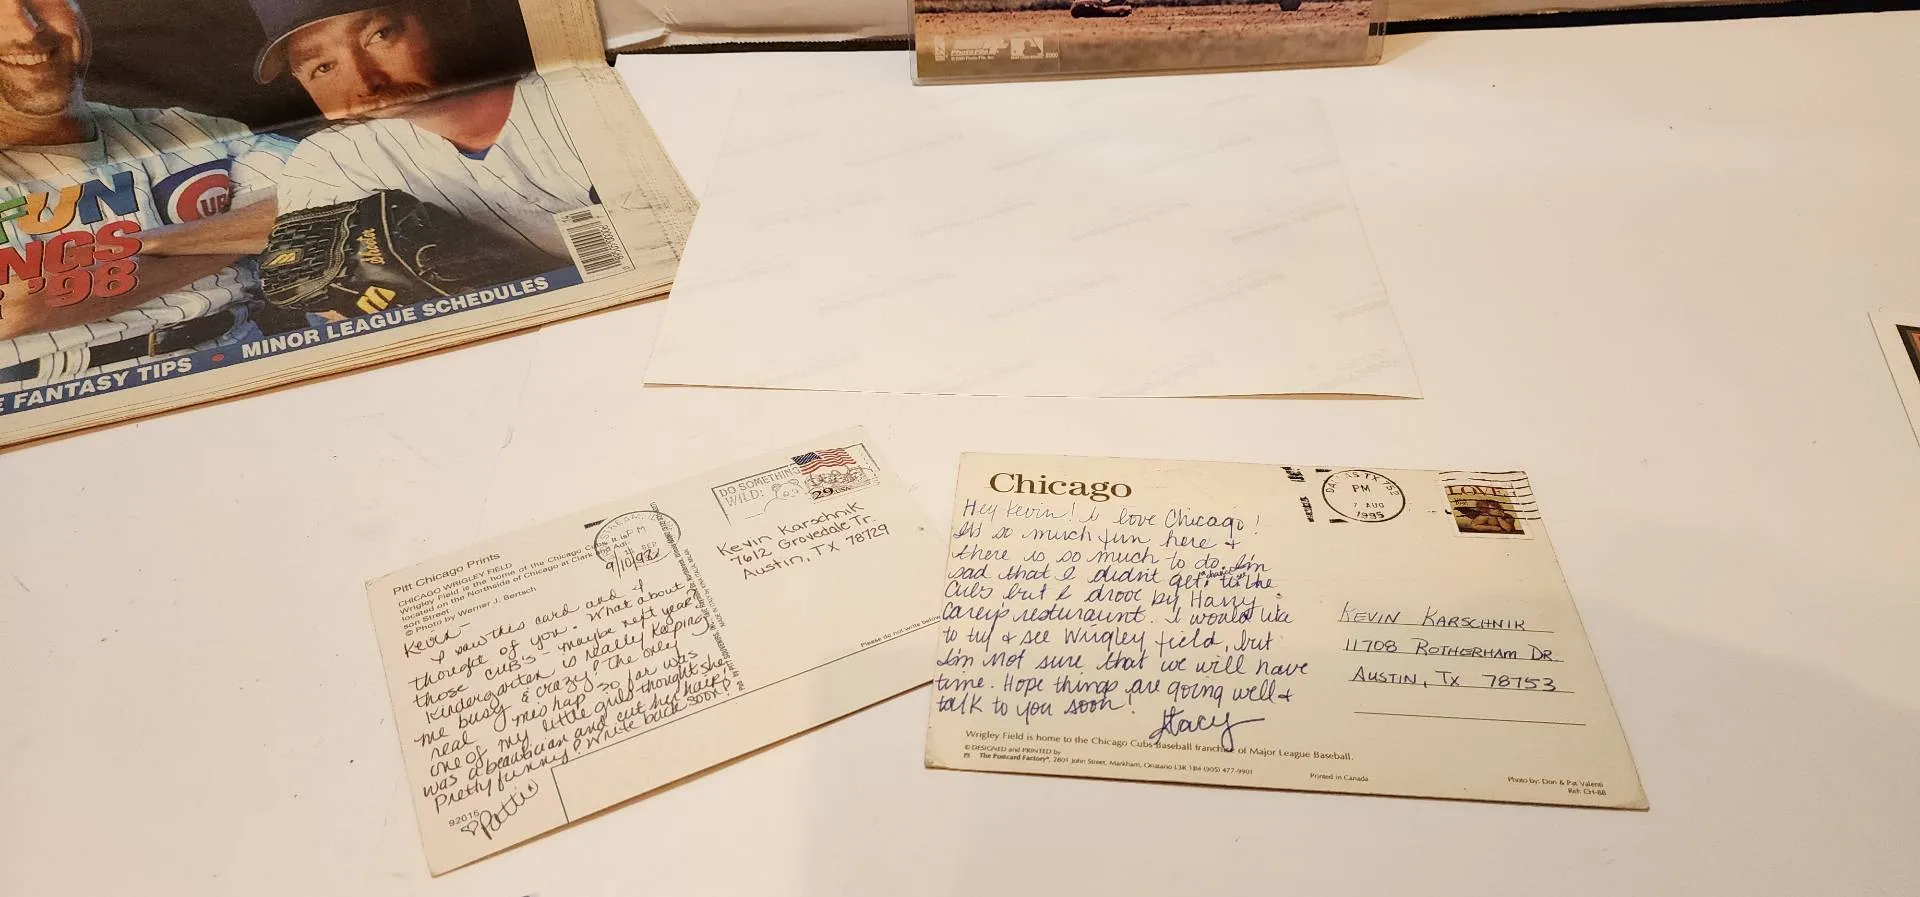 FUN
'98
CUBS
Shooter
FANTASY TIPS • MINOR LEAGUE SCHEDULES
2000
Pitt Chicago Prints
CHICAGO WRIGLEY FIELD
Wrigley Field is the home of the Chicago Cubs. It is
located on the Northside of Chicago at Clark and Addi-
son Street
© Photo by Werner J. Bertsch
9/10/92
Kevin-
I saw this card and I
thought of you. What about
those CUB'S - maybe next year?
Kindergarten is really keeping
me busy & crazy! The only
real mishap so far was
one of my little girls thought she
was a beautician and cut her hair!
Pretty funny? Write back soon!
♡Patti
92015
DO SOMETHING
WILD:
29 USA
Kevin Karschnik
7612 Grovedale Tr.
Austin, TX 78729
Please do not write below
Chicago
Hey Kevin! I love Chicago!
It's so much fun here &
there is so much to do. I'm
sad that I didn't get to see the
Cubs but I drove by Harry
Carey's resturaunt. I would like
to try & see Wrigley field, but
I'm not sure that we will have
time. Hope things are going well &
talk to you soon!
Stacy
DALLAS TX 752
PM
7 AUG
1995
LOVE
KEVIN KARSCHNIK
11708 ROTHERHAM DR.
AUSTIN, TX 78753
Wrigley Field is home to the Chicago Cubs Baseball franchise of Major League Baseball.
© DESIGNED and PRINTED by
The Postcard Factory®, 2801 John Street, Markham, Onatario L3R 1B4 (905) 477-9901
Printed in Canada
Photo by: Don & Pat Valenti
Ref: CH-88